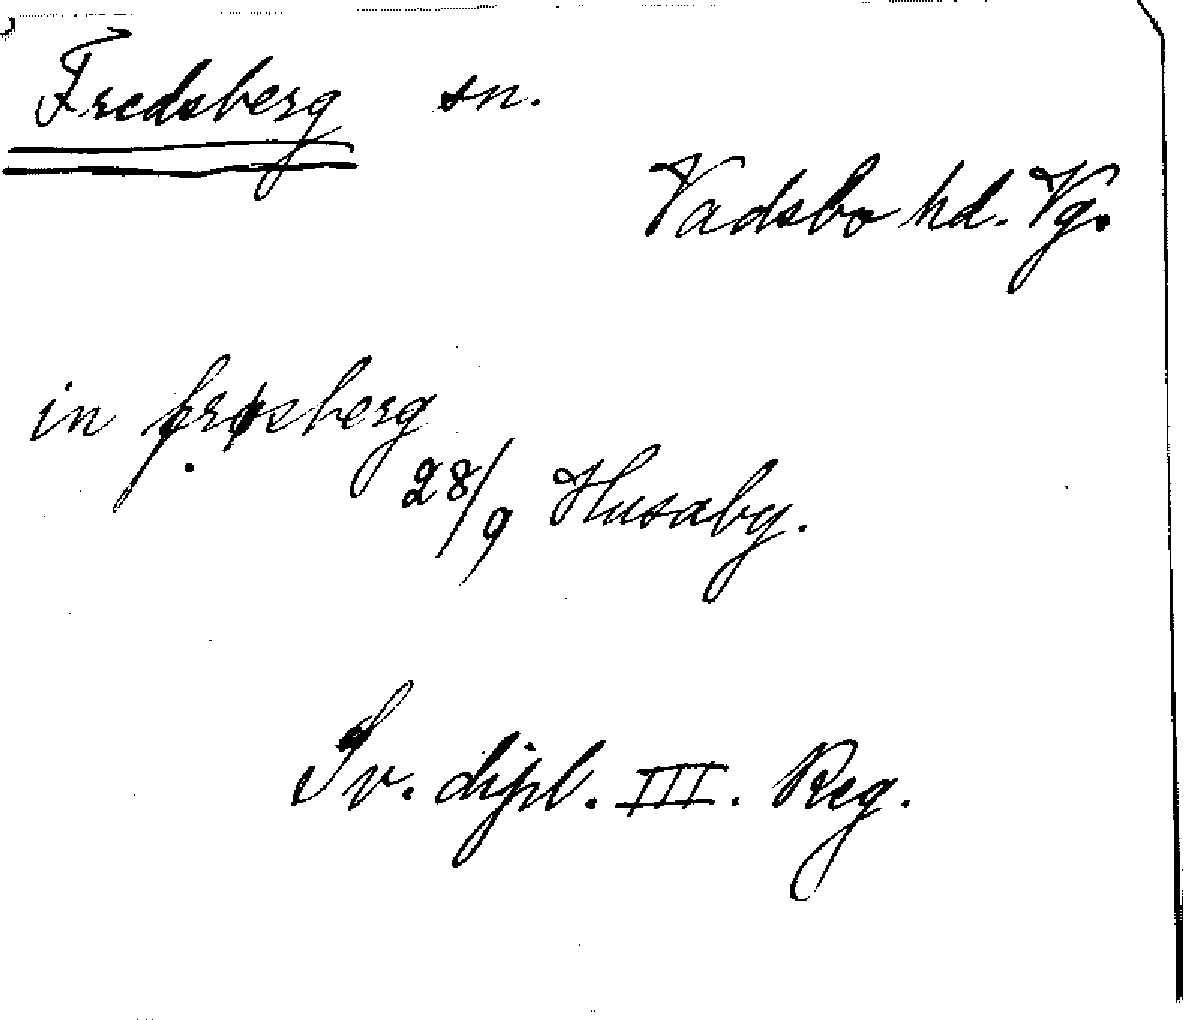 Fredsberg sn.
Vadsbo hd. Vg.
in frøsberg
28/9 Husaby.
Sv. dipl. III. Reg.